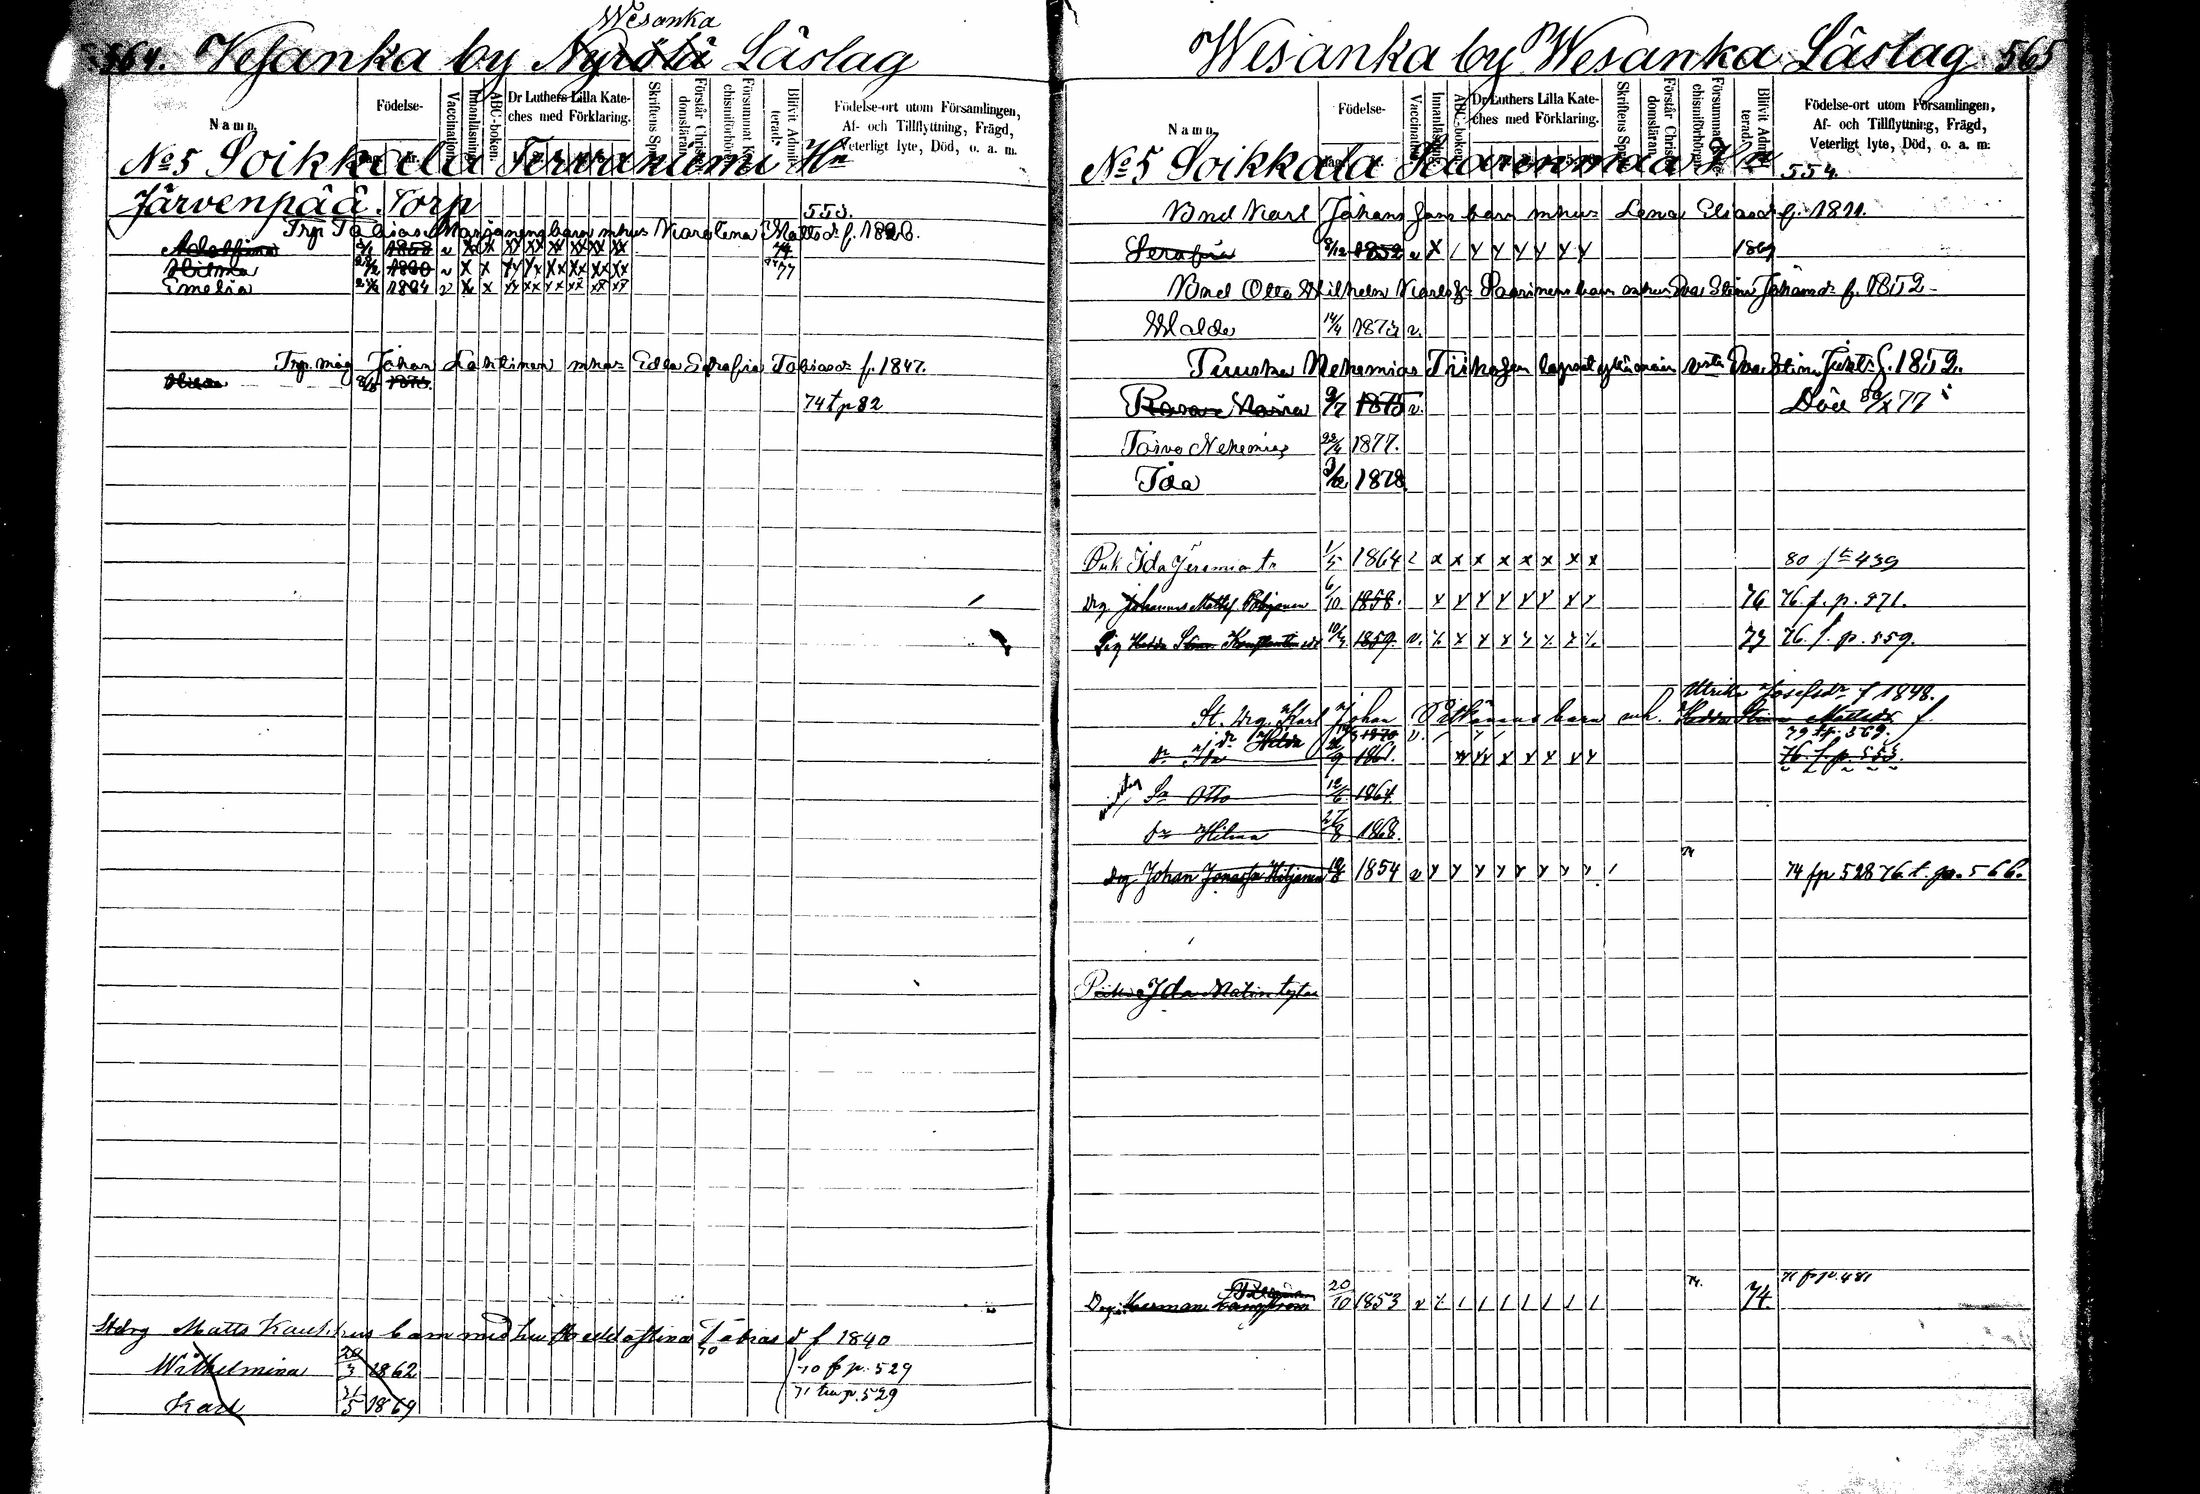 564. Vesanka by Nyrölä Läslag
Wesanka
Namn.
Födelse-
Vaccination.
Innanläsning.
ABC-boken.
Dr Luthers Lilla Kateches med Förklaring.
Skriftens Spr
Förstår Christendomsläran.
Försummat Katechismiförhör.
Blifvit Admitterad.
Födelse-ort utom Församlingen,
Af- och Tillflyttning, Frägd,
Veterligt lyte, Död, o. a. m.
No 5 Soikkala Tervaniemi Hn
Järvenpää Torp
553.
Trp Tobias Marjanens barn m hus Karolena Matts dr f. 1826.
Adolfina 1858 v
Hilma 1860 v 77
Emelia 1864 v
Trp. måg Johan Lahtinen m hus Edla Serafia Tobias dr f. 1847.
Hilda 1873.
74 t p 82
Stdrg Matts barn med hu Tobias d f 1840
Wilhelmina 20/3 1862 70 f p. 529
Karl 21/5 1869 71 tu p. 529
Wesanka by Wesanka Läslag 565
Namn.
Födelse-
Vaccination.
Innanläsning.
ABC-boken.
Dr Luthers Lilla Kateches med Förklaring.
Skriftens Spr
Förstår Christendomsläran.
Försummat Katechismiförhör.
Blifvit Admitterad.
Födelse-ort utom Församlingen,
Af- och Tillflyttning, Frägd,
Veterligt lyte, Död, o. a. m.
No 5 Soikkala Saarenmaa Hn 554.
Bnd Karl Johans sons barn m hus Lena Elias dr f. 1811.
Serafia 8/12 1852 v 1869
Bnd Otto Wilhelm Karls s. Saarinens barn m hus Eva Stina Johans dr f. 1852
Walde 14/4 1873 v.
Nehemias lapset Eva Stina f. 1852.
Maria 9/7 1875 v. Död 30/X 77
Toivo Nehemias 22/4 1877.
Ida 3/12 1878
Ida Jeremia tr 1/5 1864 80 fr 439
Drg. Johannes Matts s. 6/10 1858. 76 76. f. p. 371.
Pig Hedda Stina Konstantins dr 10/4 1859. v. 77 76. f. p. 559.
Ulrika Josefs dr f 1848.
St. drg. Karl Johan Pitkänens barn m h. Hedda Stina Matts dr f.
dr Hilda 1870 v. 79 t p. 569.
dr Ida 9 1861. 76. f. p. 553.
Sn Otto 12/6 1864.
dr Hilma 27/8 1868.
Drg Johan 1854 v 74 74 fp 528 76 t. p. 566.
Piika Ida Matin tytär
Drg Herman 20/10 1853 v 74. 74. 71 f p. 481